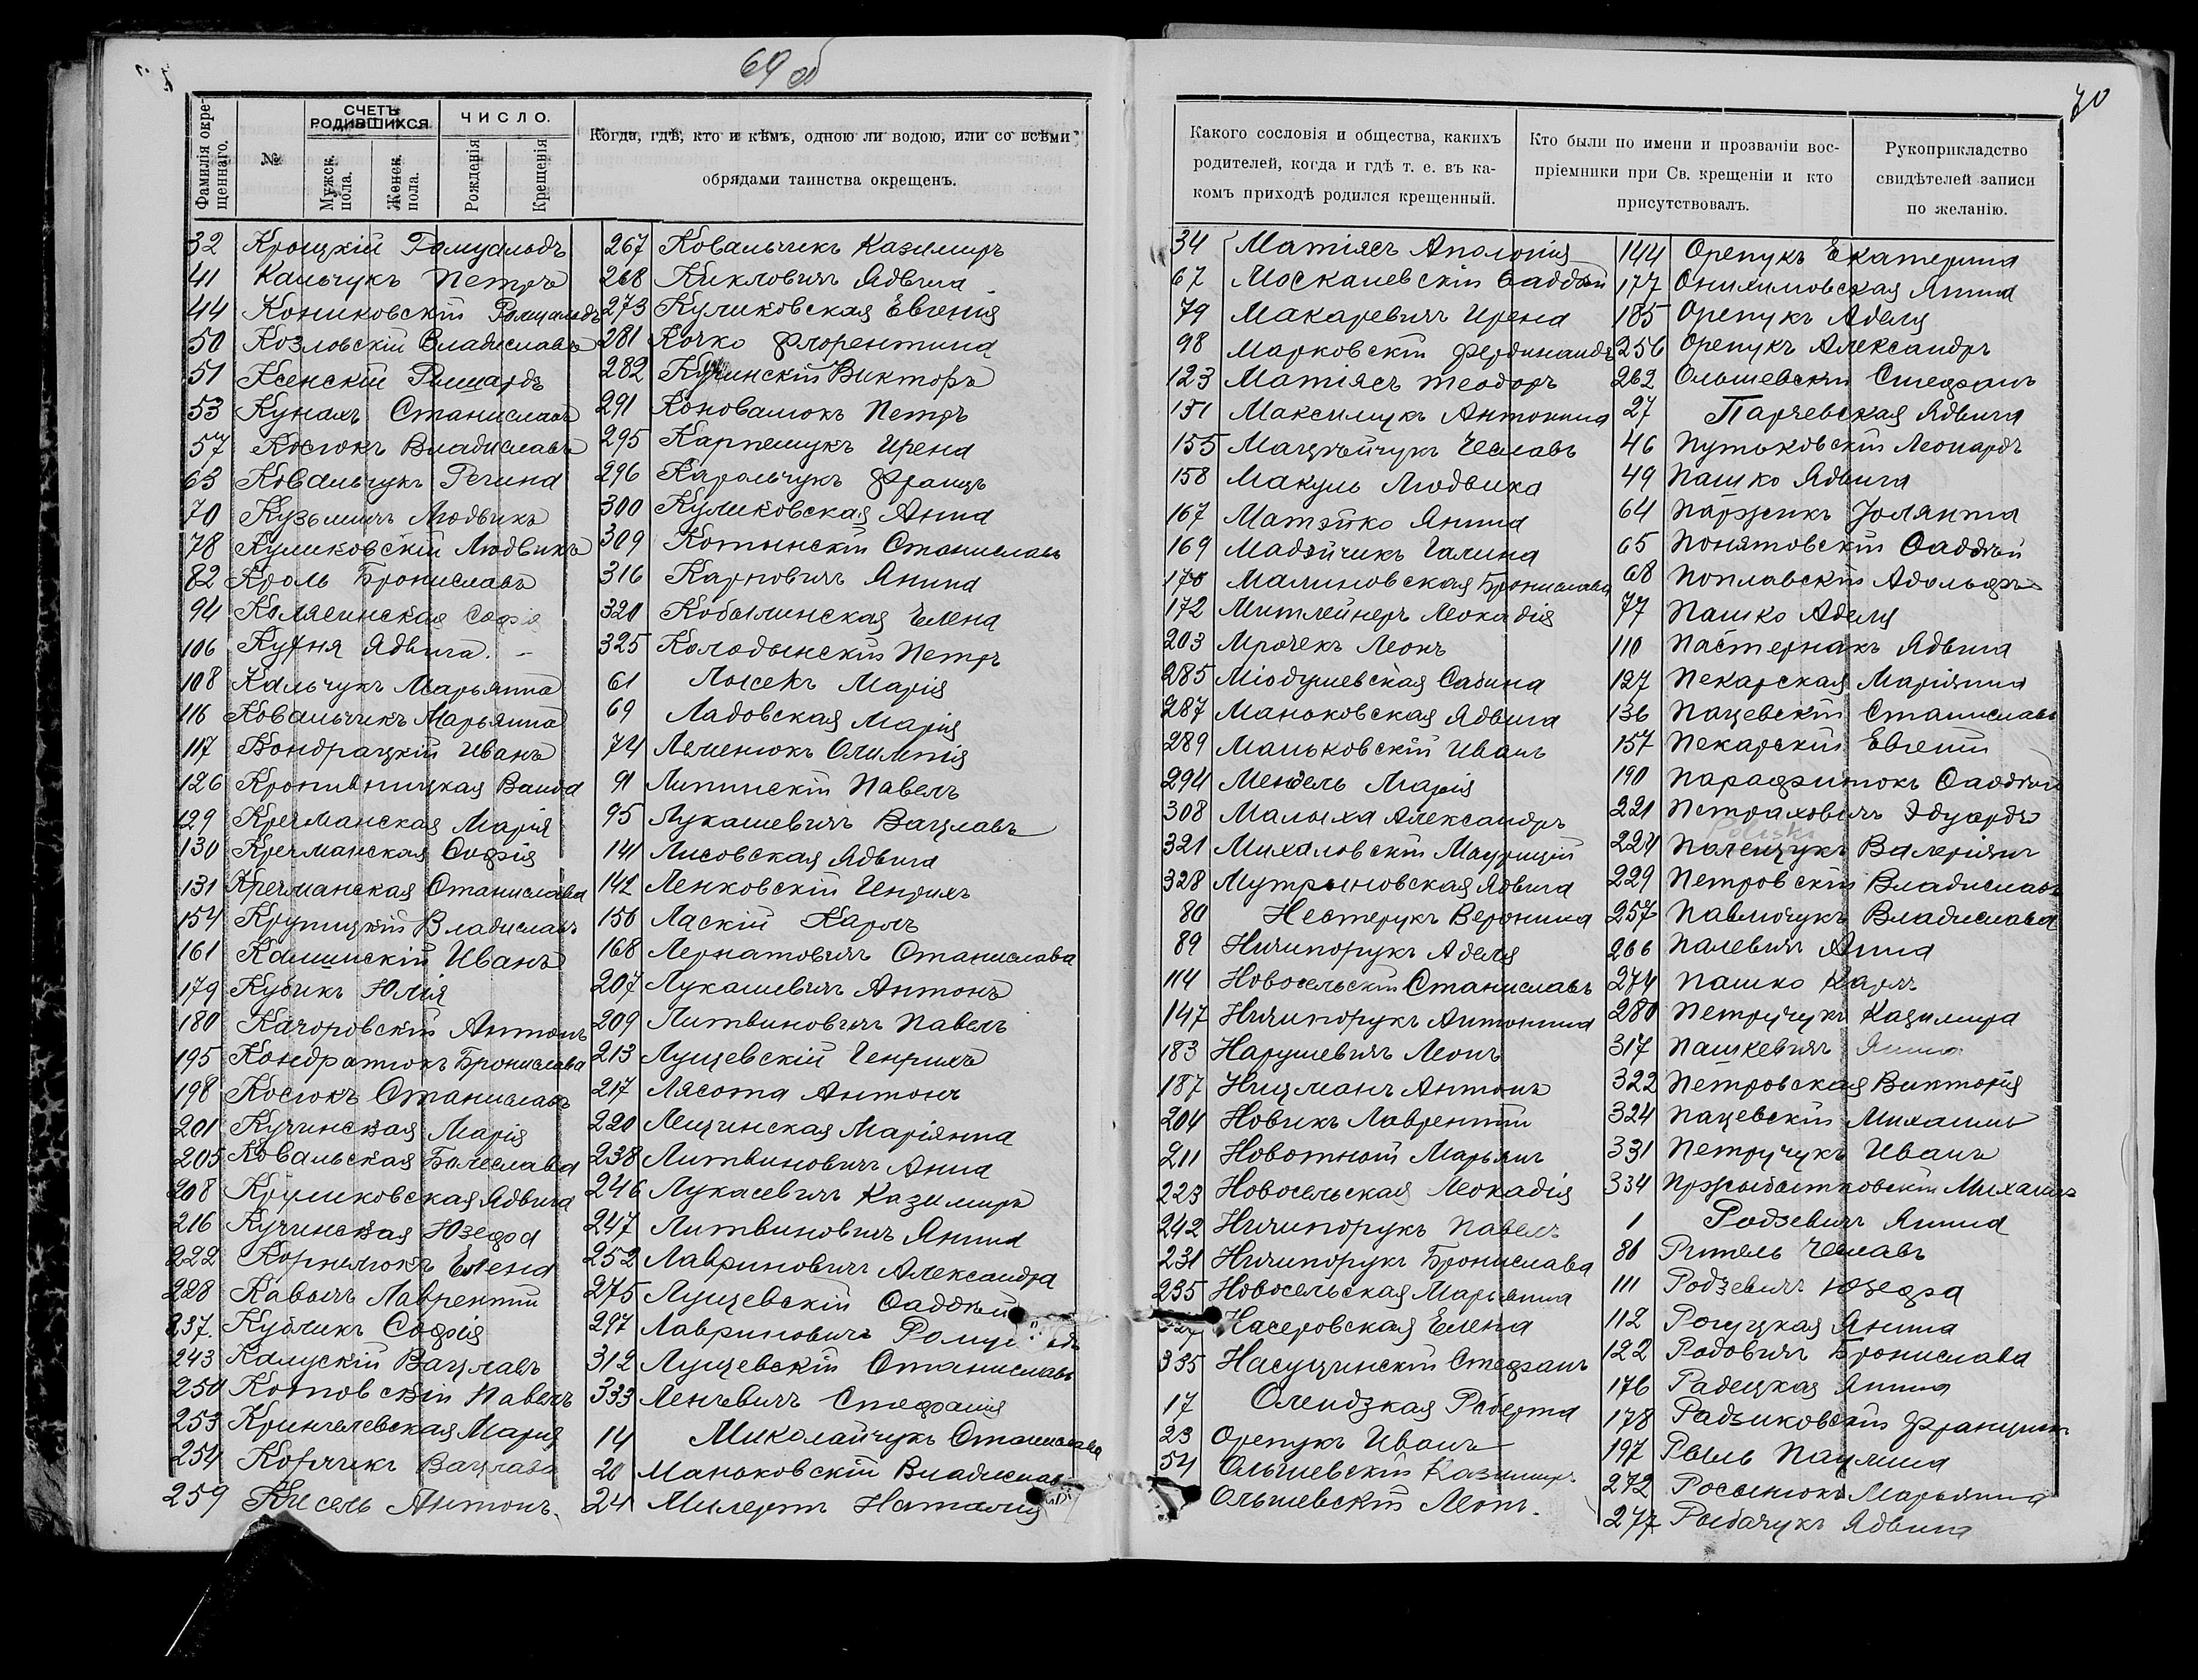 69 об
Фамилія окрещеннаго.
№
СЧЕТЪ РОДИВШИХСЯ
Мужск. пола.
Женск. пола.
ЧИСЛО.
Рожденія
Крещенія
Когда, гдѣ, кто и кѣмъ, одною ли водою, или со всѣми
обрядами таинства окрещенъ.
32 Кроцкій Ромуальдъ
41 Кальчукъ Петръ
44 Кониковскій Ромуальдъ
50 Козловскій Владиславъ
51 Ксенскій Ришардъ
53 Кунахъ Станиславъ
57 Косюкъ Владиславъ
63 Ковальчукъ Регина
70 Кузьмичъ Людвикъ
78 Куликовскій Людвикъ
82 Кроль Брониславъ
94 Колясинская Софія
106 Кухня Ядвига.
108 Кальчукъ Марьянна
116 Ковальчикъ Марьянна
117 Кондрацкій Иванъ
126 Кропивницкая Ванда
129 Кречманская Марія
130 Кречманская Софія
131 Кречманская Станислава
154 Крупицкій Владиславъ
161 Калишскій Иванъ
179 Кубикъ Юлія
180 Качоровскій Антонъ
195 Кондратюкъ Бронислава
198 Косюкъ Станиславъ
201 Кучинская Марія
205 Ковальская Болеслава
208 Круликовская Ядвига
216 Кучинская Юзефа
222 Корнилюкъ Елена
228 Кавычъ Лаврентій
237. Кубликъ Софія
243 Калускій Вацлавъ
250 Котовскій Павелъ
253 Крингелевская Марія
254 Корчикъ Вацлава
259 Кисель Антонъ.
267 Ковальчикъ Казимиръ
268 Кикловичъ Ядвига
273 Куликовская Евгенія
281 Кочко Флорентина
282 Кучинскій Викторъ
291 Коновалюкъ Петръ
295 Карпешукъ Ирена
296 Карольчукъ Францъ
300 Куликовская Анна
309 Котынскій Станиславъ
316 Карповичъ Янина
320 Кобылинская Елена
325 Колодынскій Петръ
61 Лысекъ Марія
69 Ладовская Марія
74 Леменюкъ Олимпія
91 Липинскій Павелъ
95 Лукашевичъ Вацлавъ
141 Лисовская Ядвига
142 Ленковскій Генрихъ
156 Ласкій Каролъ
168 Лернатовичъ Станислава
207 Лукашевичъ Антонъ
209 Литвиновичъ Павелъ
213 Лущевскій Генрихъ
217 Лясота Антонъ
220 Лещинская Маріянна
238 Литвиновичъ Анна
246 Лукасевичъ Казимиръ
247 Литвиновичъ Янина
252 Лавриновичъ Александра
275 Лущевскій Фаддѣй
297 Лавриновичъ
312 Лущевскій Станиславъ
333 Ленчевичъ Стефанія
14 Миколайчукъ Станислава
20 Маньковскій Владиславъ
24 Милертъ Наталія
70
Какого сословія и общества, какихъ
родителей, когда и гдѣ т. е. въ ка-
комъ приходѣ родился крещенный.
Кто были по имени и прозванію вос-
пріемники при Св. крещеніи и кто
присутствовалъ.
Рукоприкладство
свидѣтелей записи
по желанію.
34 Матіясъ Аполонія
67 Москалевскій Фаддѣй
79 Макаревичъ Ирена
98 Марковскій Фердинандъ
123 Матіясъ Теодоръ
151 Максимукъ Антонина
155 Мацѣйчукъ Чеславъ
158 Макуль Людвика
167 Матэйко Янина
169 Мадэйчикъ Галина
170 Малиновская Бронислава
172 Митлейнеръ Леокадія
203 Мрочекъ Леонъ
285 Міодушевская Сабина
287 Маньковская Ядвига
289 Маньковскій Иванъ
294 Мендель Марія
308 Малыха Александръ
321 Михаловскій Маурицій
328 Мутрыновская Ядвига
80 Нестерукъ Вероника
89 Ничипорукъ Аделя
114 Новосельскій Станиславъ
147 Ничипорукъ Антонина
183 Нарушевичъ Леонъ
187 Ницманъ Антонъ
204 Новикъ Лаврентій
211 Новотный Марьянъ
223 Новосельская Леокадія
242 Ничипорукъ Павелъ
231 Ничипорукъ Бронислава
235 Новосельская Марьянна
Насеровская Елена
335 Насущинскій Стефанъ
17 Олендзкая Роберта
23 Орепукъ Иванъ
54 Ольшевскій Казимиръ
Ольшевскій Леонъ.
144 Орепукъ Екатерина
177 Онихимовская Янина
185 Орепукъ Аделя
256 Орепукъ Александръ
262 Ольшевскій Стефанъ
27 Парчевская Ядвига
46 Путьковскій Леонардъ
49 Пашко Ядвига
64 Паржикъ Іолянта
65 Понятовскій Фаддѣй
68 Поплавскій Адольфъ
77 Пашко Аделя
110 Пастернакъ Ядвига
127 Пекарская Маріянна
136 Пацевскій Станиславъ
157 Пекарскій Евгеній
190 Парафинюкъ Фаддѣй
221 Петраховичъ Эдуардъ
Poliski
224 Полещукъ Валеріянъ
229 Петровскій Владиславъ
257 Павлючукъ Владислава
266 Палевичъ Анна
274 Пашко Каролъ
280 Петручукъ Казимира
317 Пашкевичъ Янина
322 Петровская Викторія
324 Пацевскій Михаилъ
331 Петручукъ Иванъ
334 Пржыбытковскій Михаилъ
1 Родзевичъ Янина
81 Рытель Чеславъ
111 Родзевичъ Юзефа
112 Рогуцкая Янина
122 Радовичъ Бронислава
176 Радецкая Янина
178 Радзиковскій Францишекъ
197 Рыль Паулина
272 Росынюкъ Марьянна
277 Рыбачукъ Ядвига